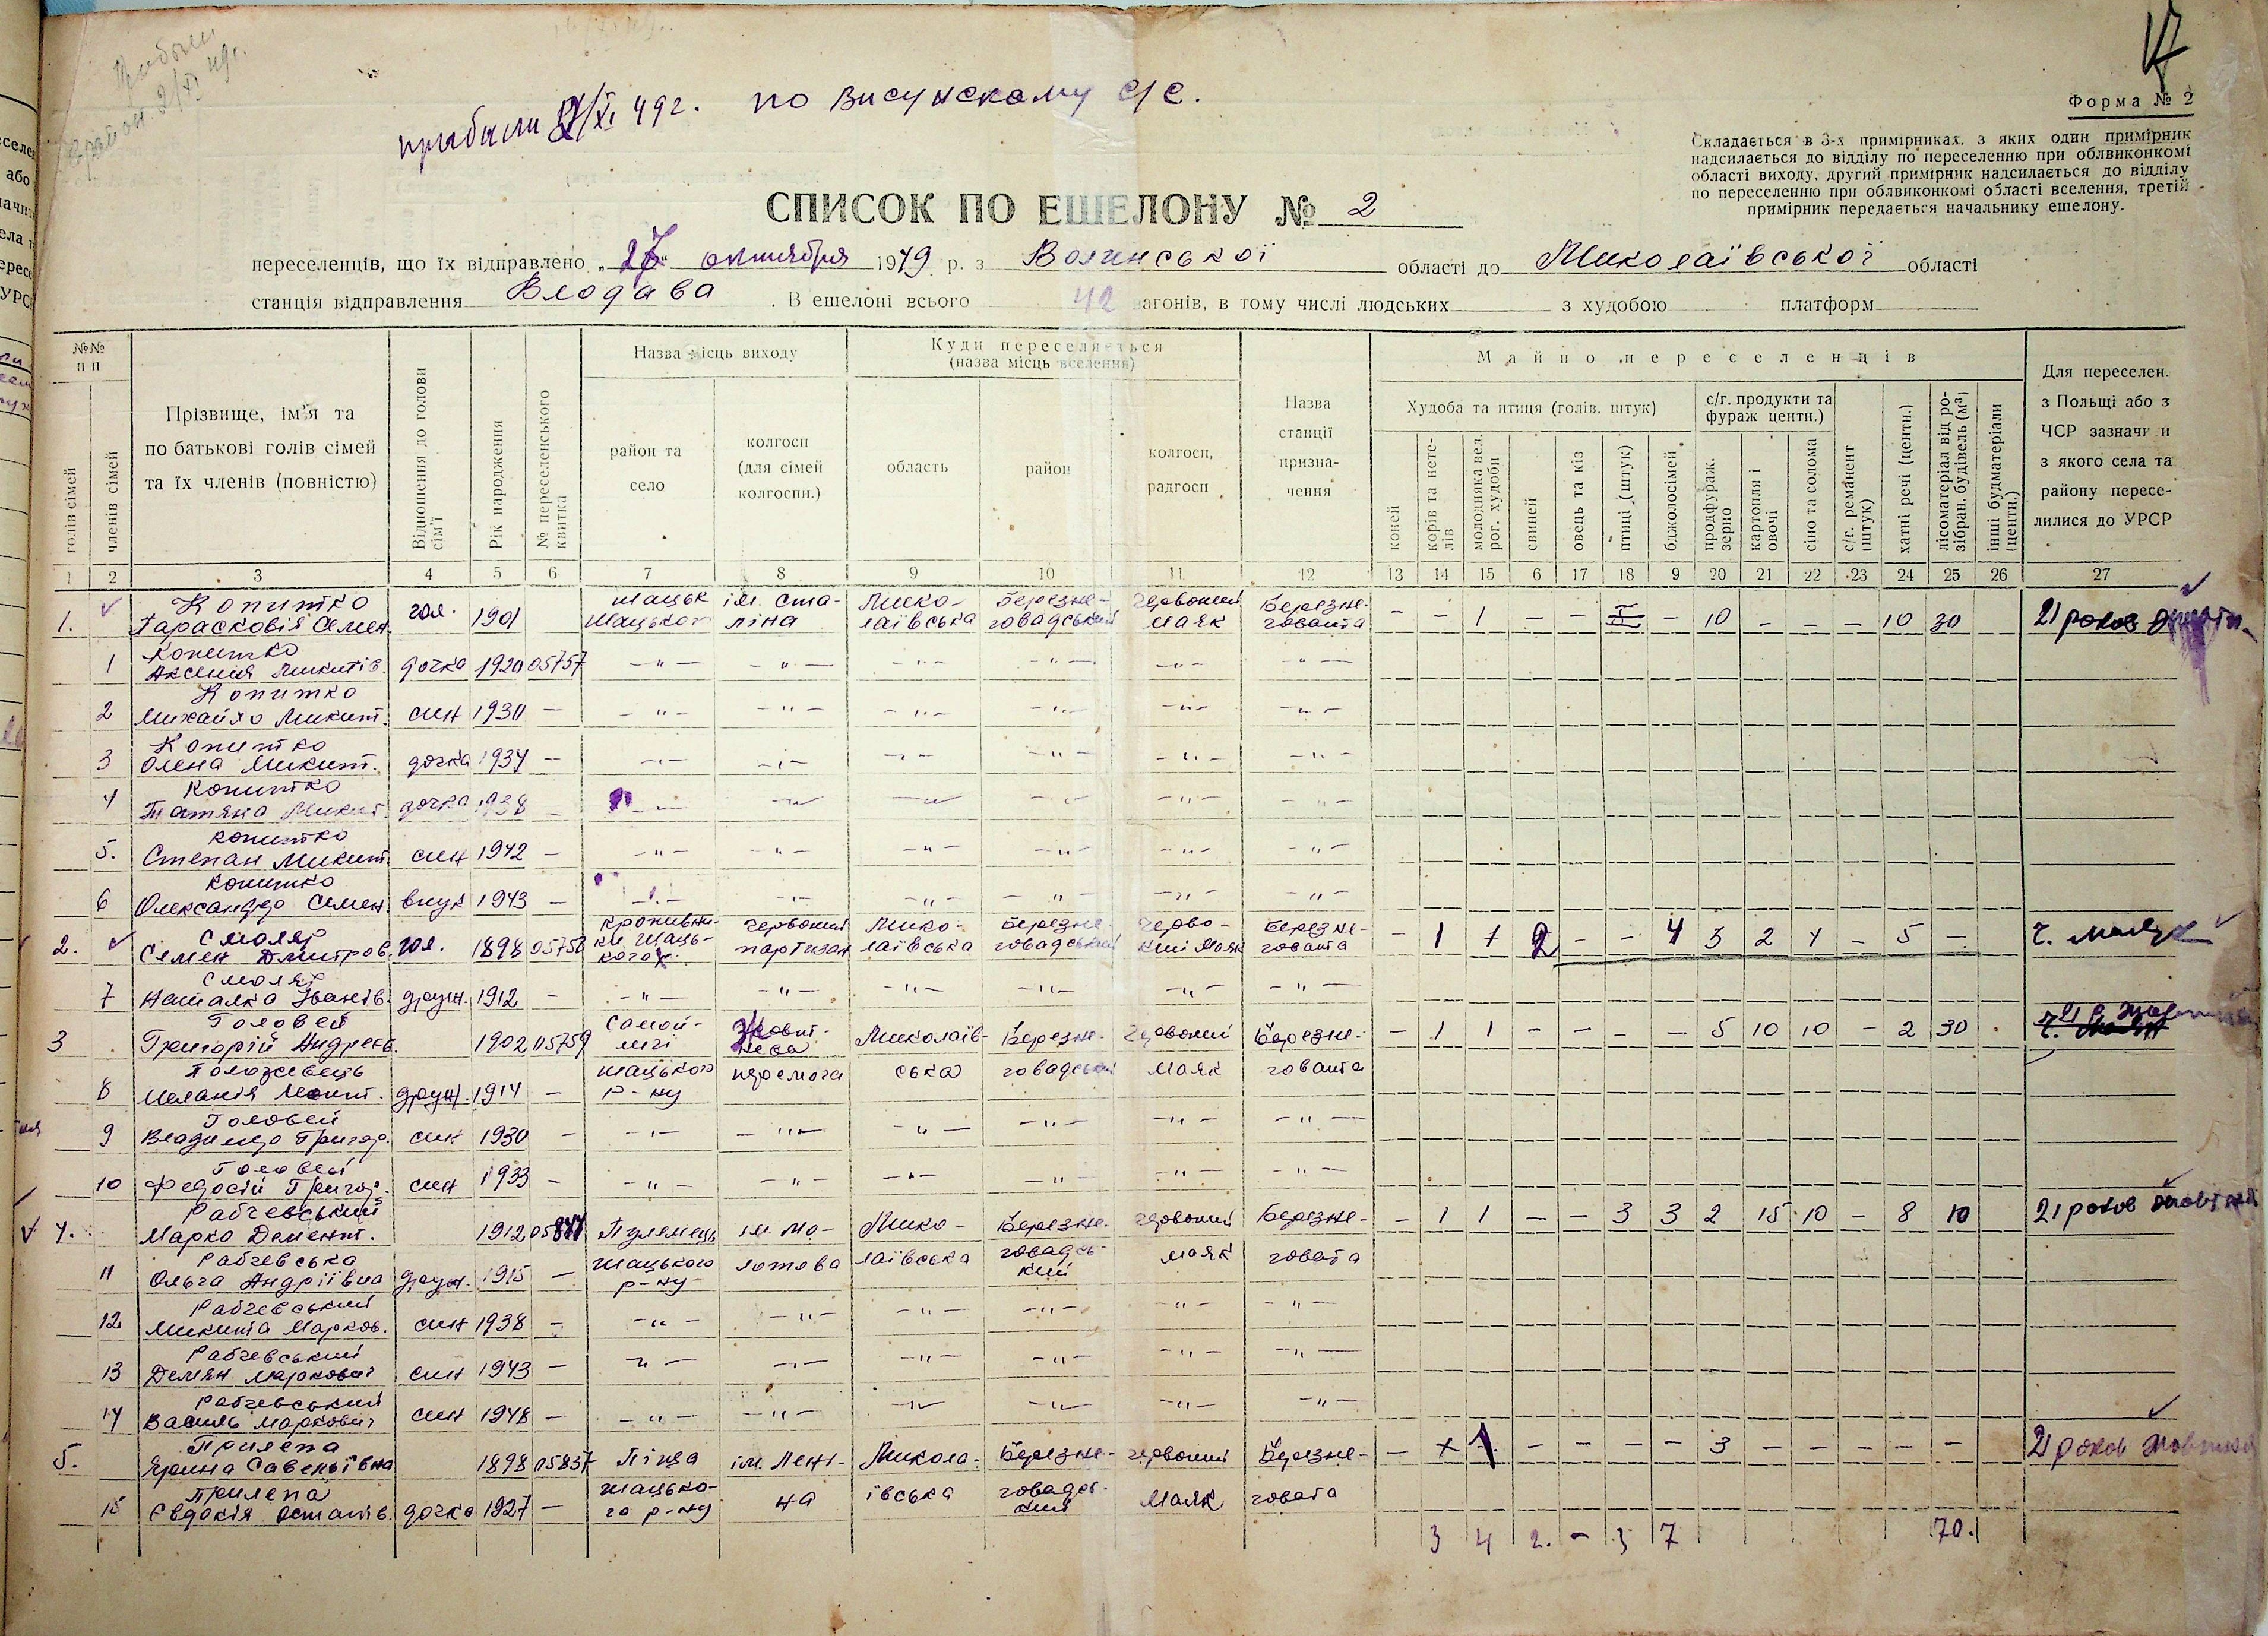 Прибыли
в район 2/XI 49г.
прибыли 2/XI 49г. по Висунскому с/с.
17
Форма № 2
Складається в 3-х примірниках, з яких один примірник
надсилається до відділу по переселенню при облвиконкомі
області виходу, другий примірник надсилається до відділу
по переселенню при облвиконкомі області вселення, третій
примірник передається начальнику ешелону.
СПИСОК ПО ЕШЕЛОНУ № 2
переселенців, що їх відправлено „27“ октября 1949 р. з Волинської області до Миколаївської області
станція відправлення Влодава. В ешелоні всього 42 вагонів, в тому числі людських з худобою платформ
№№ п п
голів сімей
членів сімей
Прізвище, ім’я та по батькові голів сімей та їх членів (повністю)
Відношення до голови сім’ї
Рік народження
№ переселенського квитка
Назва місць виходу
район та село
колгосп (для сімей колгоспн.)
Куди переселяється (назва місць вселення)
область
район
колгосп, радгосп
Назва станції призначення
Майно переселенців
Худоба та птиця (голів, штук)
коней
корів та нетелів
молодняка вел. рог. худоби
свиней
овець та кіз
птиці (штук)
бджолосімей
с/г. продукти та фураж центн.)
продфураж. зерно
картопля і овочі
сіно та солома
с/г. реманент (штук)
хатні речі (центн.)
лісоматеріал від розібран. будівель (м³)
інші будматеріали (центн.)
Для переселен. з Польщі або з ЧСР зазначи и з якого села та району переселилися до УРСР
1 2 3 4 5 6 7 8 9 10 11 12 13 14 15 6 17 18 9 20 21 22 23 24 25 26 27
1. Копитко Парасковія Семен. гол. 1901 Шацьк Шацького ім. Сталіна Миколаївська Березнеговадський Червоний Маяк Березнеговата – – 1 – – – 10 – – – 10 30 21 роков
1 Копитко Аксенія Микитів. дочка 1920 05757 –"– –"– –"– –"– –"– –"–
2 Копитко Михайло Микит. син 1930 – –"– –"– –"– –"– –"– –"–
3 Копитко Олена Микит. дочка 1934 – –"– –"– –"– –"– –"– –"–
4 Копитко Татяна Микит. дочка 1938 – –"– –"– –"– –"– –"– –"–
5. Копитко Степан Микит. син 1942 – –"– –"– –"– –"– –"– –"–
6 Копитко Олександр Семен. внук 1943 – –"– –"– –"– –"– –"– –"–
2. Смоляр Семен Дмитров. гол. 1898 05758 Кропивники Шацького р. Червоний партизан Миколаївська Березнеговадський Червоний Маяк Березнеговата – 1 1 2 – – 4 3 2 4 – 5 – Ч. Маяк
7 Смоляр Наталка Іванів. друж. 1912 – –"– –"– –"– –"– –"– –"–
3 Головей Григорій Андреев. 1902 05759 Самойличі Миколаїв- Березне- Червоний Березне- – 1 1 – – – – 5 10 10 – 2 30 21 р. Жовтня
8 Меланія друж. 1914 – Шацького р-ну перемога ська говадський Маяк говата
9 Головей Владимир Григор. син 1930 – –"– –"– –"– –"– –"– –"–
10 Головей Федосій Григор. син 1933 – –"– –"– –"– –"– –"– –"–
4. Рабчевський Марко Демент. 1912 05847 Пулемець ім. Мо- Мико- Березне- Червоний Березне- – 1 1 – – 3 3 2 15 10 – 8 10 21 роков Жовтня
11 Рабчевська Ольга Андріївна друж. 1915 – Шацького р-ну лотова лаївська говадський маяк говата
12 Рабчевський Микита Марков. син 1938 – –"– –"– –"– –"– –"– –"–
13 Рабчевський Демян Маркович син 1943 – –"– –"– –"– –"– –"– –"–
14 Рабчевський Василь Маркович син 1948 – –"– –"– –"– –"– –"– –"–
5. Прилепа Ярина Савельівна 1898 05837 Піща ім. Лені- Микола- Березне- Червоний Березне- – 1 – – – – 3 – – – – – 21 роков Жовтня
15 Прилепа Євдокія Остапів. дочка 1927 – Шацького р-ну на ївська говадський Маяк говата
3 4 2. – 3 7 70.